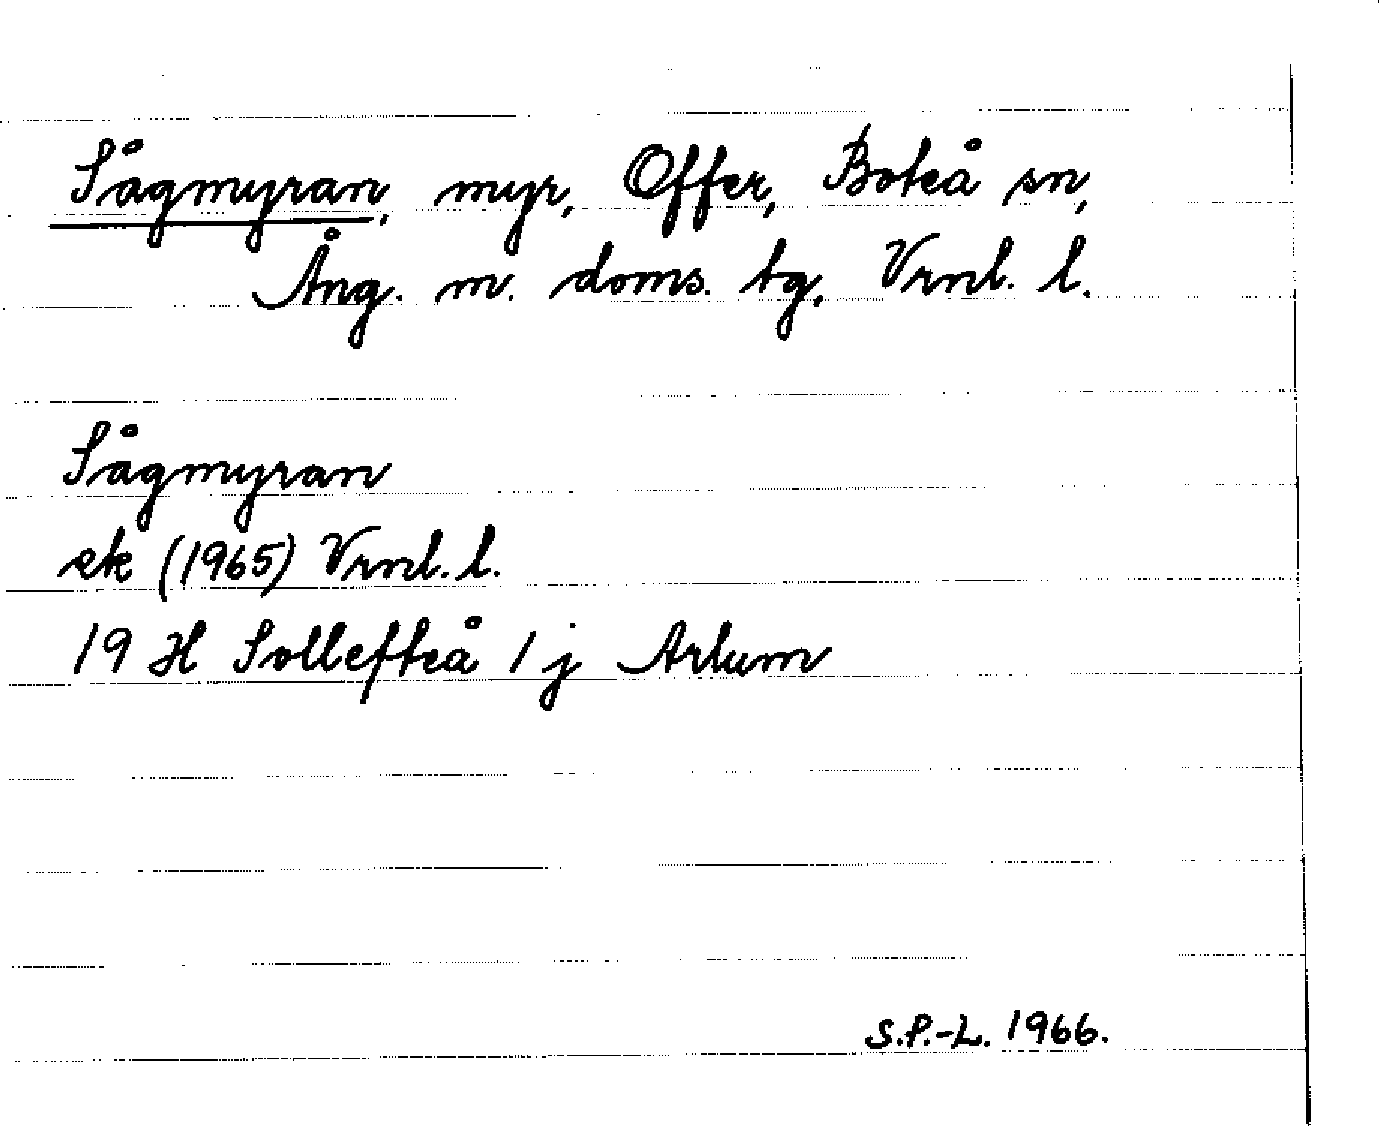 Sågmyran, myr, Offer, Boteå sn,
Ång. m. doms. tg, Vrnl. l.
Sågmyran
ek (1965) Vrnl. l.
19 H Sollefteå 1 j Arlum
S.P.-L. 1966.